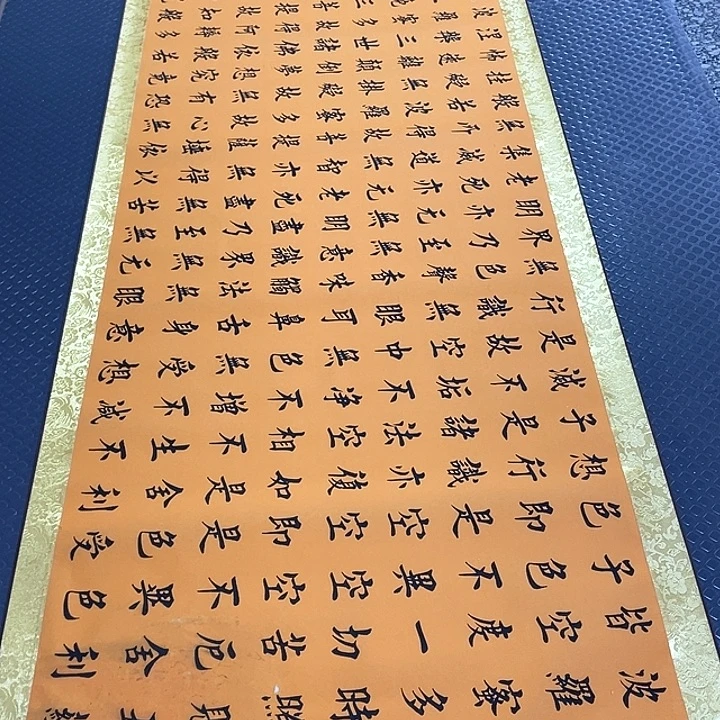 波羅蜜多時照見
皆空度一切苦厄舍利
子色不異空空不異色
色即是空空即是色受
想行識亦復如是舍利
子是諸法空相不生不
滅不垢不净不增不減
是故空中無色無受想
行識無眼耳鼻舌身意
無色聲香味觸法無眼
界乃至無意識界無无
明亦无無明盡乃至無
老死亦無老死盡無苦
集滅道無智亦無得以
無所得故菩提薩埵依
般若波羅蜜多故心無
挂礙無掛礙故無有恐
怖遠離顛倒夢想究竟
涅槃三世諸佛依般若
波羅蜜多故得阿耨多